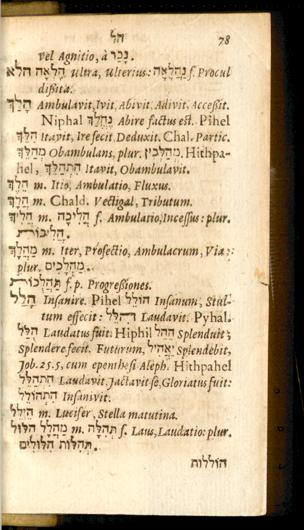 הל 78
vel Agnitio, à נָכַר.
הלא הָלְאָה Ultra, Ulterius: נַהֲלָאָה f. Procul
dissita.
הָלַךְ Ambulavit, Ivit, Abivit, Adivit, Accessit.
Niphal נֶהֱלַךְ Abire factus est. Pihel
הִלֵּךְ Itavit, Ire fecit, Deduxit. Chal. Partic.
מְהַלֵּךְ Obambulans, plur. מַהְלְכִין. Hithpa-
hel, הִתְהַלֵּךְ Itavit, Obambulavit.
הֵלֶךְ m. Itio, Ambulatio, Fluxus.
הֲלָךְ m. Chald. Vectigal, Tributum.
הָלִיךְ m. הֲלִיכָה f. Ambulatio, Incessus: plur.
הֲלִיכוֹת.
מַהֲלָךְ m. Iter, Profectio, Ambulacrum, Via:
plur. מַהְלְכִים.
תַּהֲלֻכוֹת f. p. Progressiones.
הָלַל Insanire. Pihel הוֹלֵל Insanum, Stul-
tum effecit: הִלֵּל Laudavit. Pyhal.
הֻלַּל Laudatus fuit. Hiphil הֵהֵל Splenduit;
Splendere fecit. Futurum, יַאֲהִיל Splendebit,
Job. 25. 5, cum epenthesi Aleph. Hithpahel
הִתְהַלֵּל Laudavit. Jactavit se, Gloriatus fuit:
הִתְהוֹלֵל Insanivit.
הֵילֵל m. Lucifer, Stella matutina.
מַהֲלָל הִלּוּל m. תְּהִלָּה f. Laus, Laudatio: plur.
תְּהִלּוֹת הִלּוּלִים.
הוללות